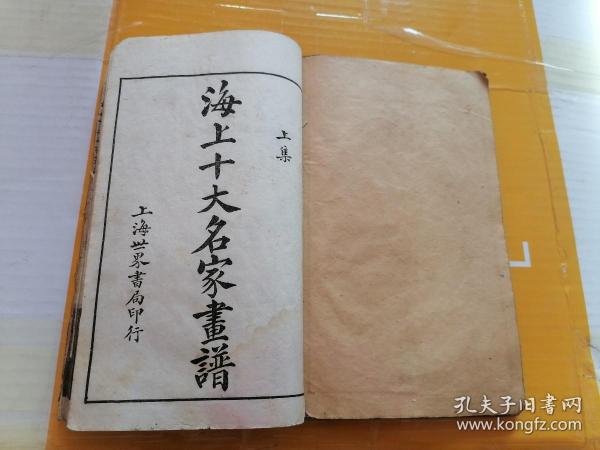 上集
海上十大名家畫譜
上海世界書局印行
孔夫子旧书网
www.kongfz.com